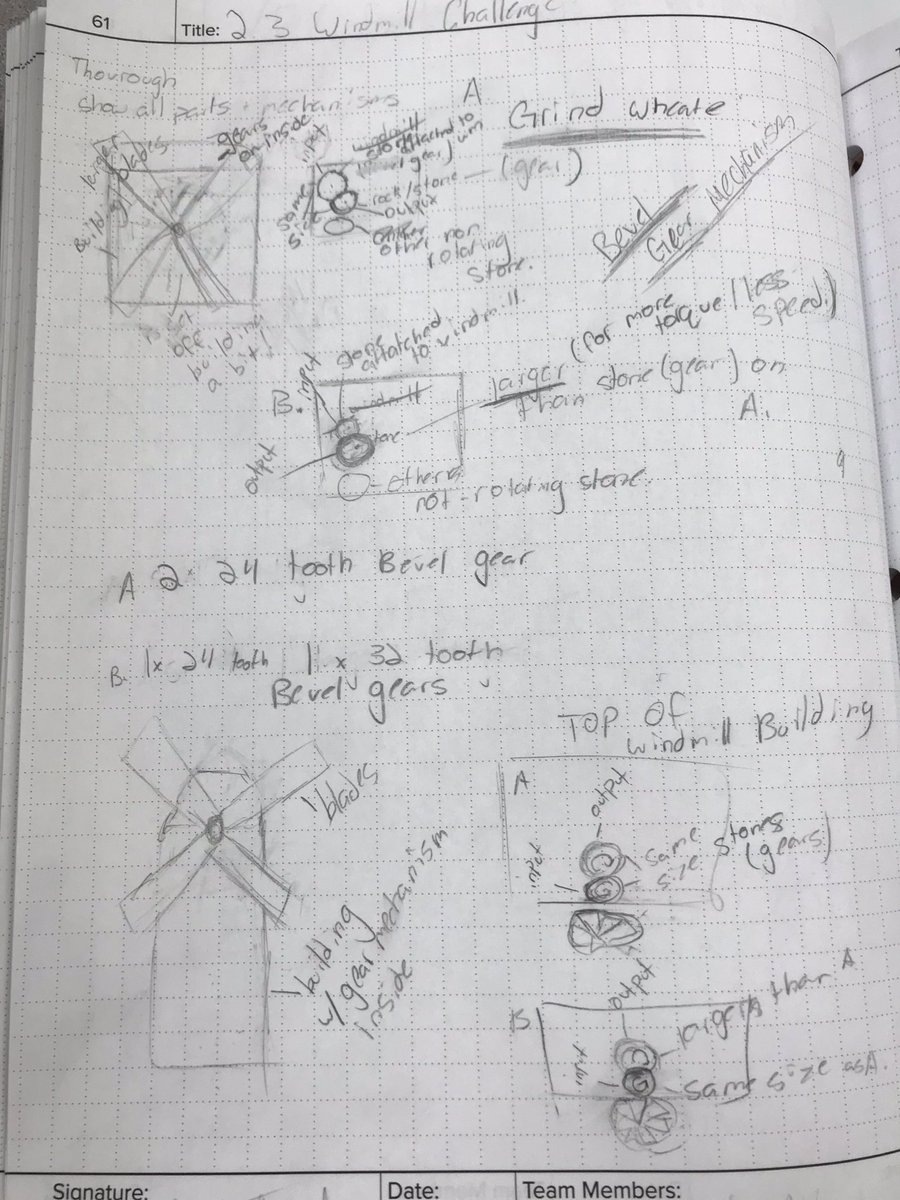 61
Title: 2.3 Windmill Challenge
Thourough
show all parts + mechanisms
A
Grind wheate
(gear)
gears
on inside
input
larger
blades
Building
windmill
attached to
gear) wm
rock/stone
output
same
size
other non
rotating
stone.
Bevel
Gear Mechanism
off
building
a bit
B.
input
attatched
to windmill.
windmill
output
larger (for more
torque / less
speed.)
than stone (gear) on
A.
not-rotating stone.
A 2 24 tooth Bevel gear
B. 1x 24 tooth 1 x 32 tooth
Bevel gears
blades
building
w/ gear mechanism
inside
TOP of
windmill Building
A
output
input
same
size
stones
(gears)
B
output
input
larger than A
same size as A.
Signature:
Date:
Team Members: